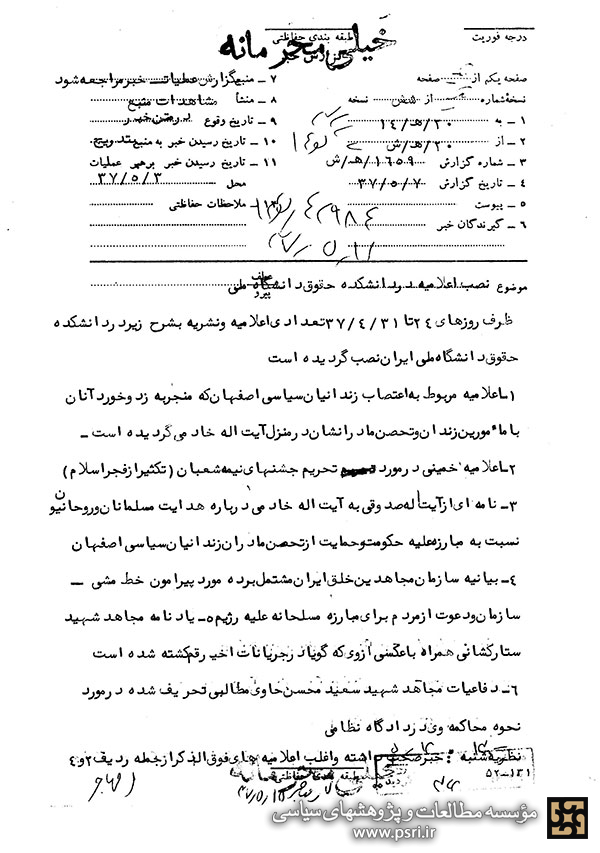 درجه فوریت
طبقه بندی حفاظتی
خیلی محرمانه
صفحه یکم از صفحه
نسخه شماره از شش نسخه
۱ ـ به ۲۰/هـ/۱۴
۲ ـ از ۲۰/هـ/ش
۳ ـ شماره گزارش ۱۶۵۹/هـ/ش
۴ ـ تاریخ گزارش ۳۷/۵/۷
۵ ـ پیوست
۶ ـ گیرندگان خبر
۷ ـ منبع گزارش عملیات خبر مراجعه شود
۸ ـ منشأ مشاهدات منبع
۹ ـ تاریخ وقوع بر متن خبر
۱۰ ـ تاریخ رسیدن خبر به منبع بتدریج
۱۱ ـ تاریخ رسیدن خبر برهبر عملیات
محل ۳۷/۵/۳
ملاحظات حفاظتی
موضوع نصب اعلامیه در دانشکده حقوق دانشگاه ملی
ظرف روزهای ۲۴ تا ۳۷/۴/۳۱ تعدادی اعلامیه ونشریه بشرح زیر در دانشکده
حقوق دانشگاه ملی ایران نصب گردیده است
۱ـ اعلامیه مربوط به اعتصاب زندانیان سیاسی اصفهان که منجر به زد وخورد آنان
با مأمورین زندان وتحصن مادرانشان در منزل آیت اله خادمی گردیده است ـ
۲ـ اعلامیه خمینی در مورد تحریم جشنهای نیمه شعبان (تکثیر از فجر اسلام)
۳ـ نامه ای از آیت اله صدوقی به آیت اله خادمی درباره هدایت مسلمانان وروحانیون
نسبت به مبارزه علیه حکومت وحمایت از تحصن مادران زندانیان سیاسی اصفهان
۴ـ بیانیه سازمان مجاهدین خلق ایران مشتمل برده مورد پیرامون خط مشی ـ
سازمان ودعوت از مردم برای مبارزه مسلحانه علیه رژیم ۵ـ یادنامه مجاهد شهید
ستار کشانی همراه با عکسی از وی که گویا در جریانات اخیر قم کشته شده است
۶ـ دفاعیات مجاهد شهید سعید محسن حاوی مطالبی تحریف شده در مورد
نحوه محاکمه وی در دادگاه نظامی
نظریه شنبه : خبر صحت داشته واغلب اعلامیه های فوق الذکر از جمله ردیف ۲ و ۴
طبقه بندی حفاظتی
۵۲-۱۳۱
مؤسسه مطالعات و پژوهشهای سیاسی
www.psri.ir